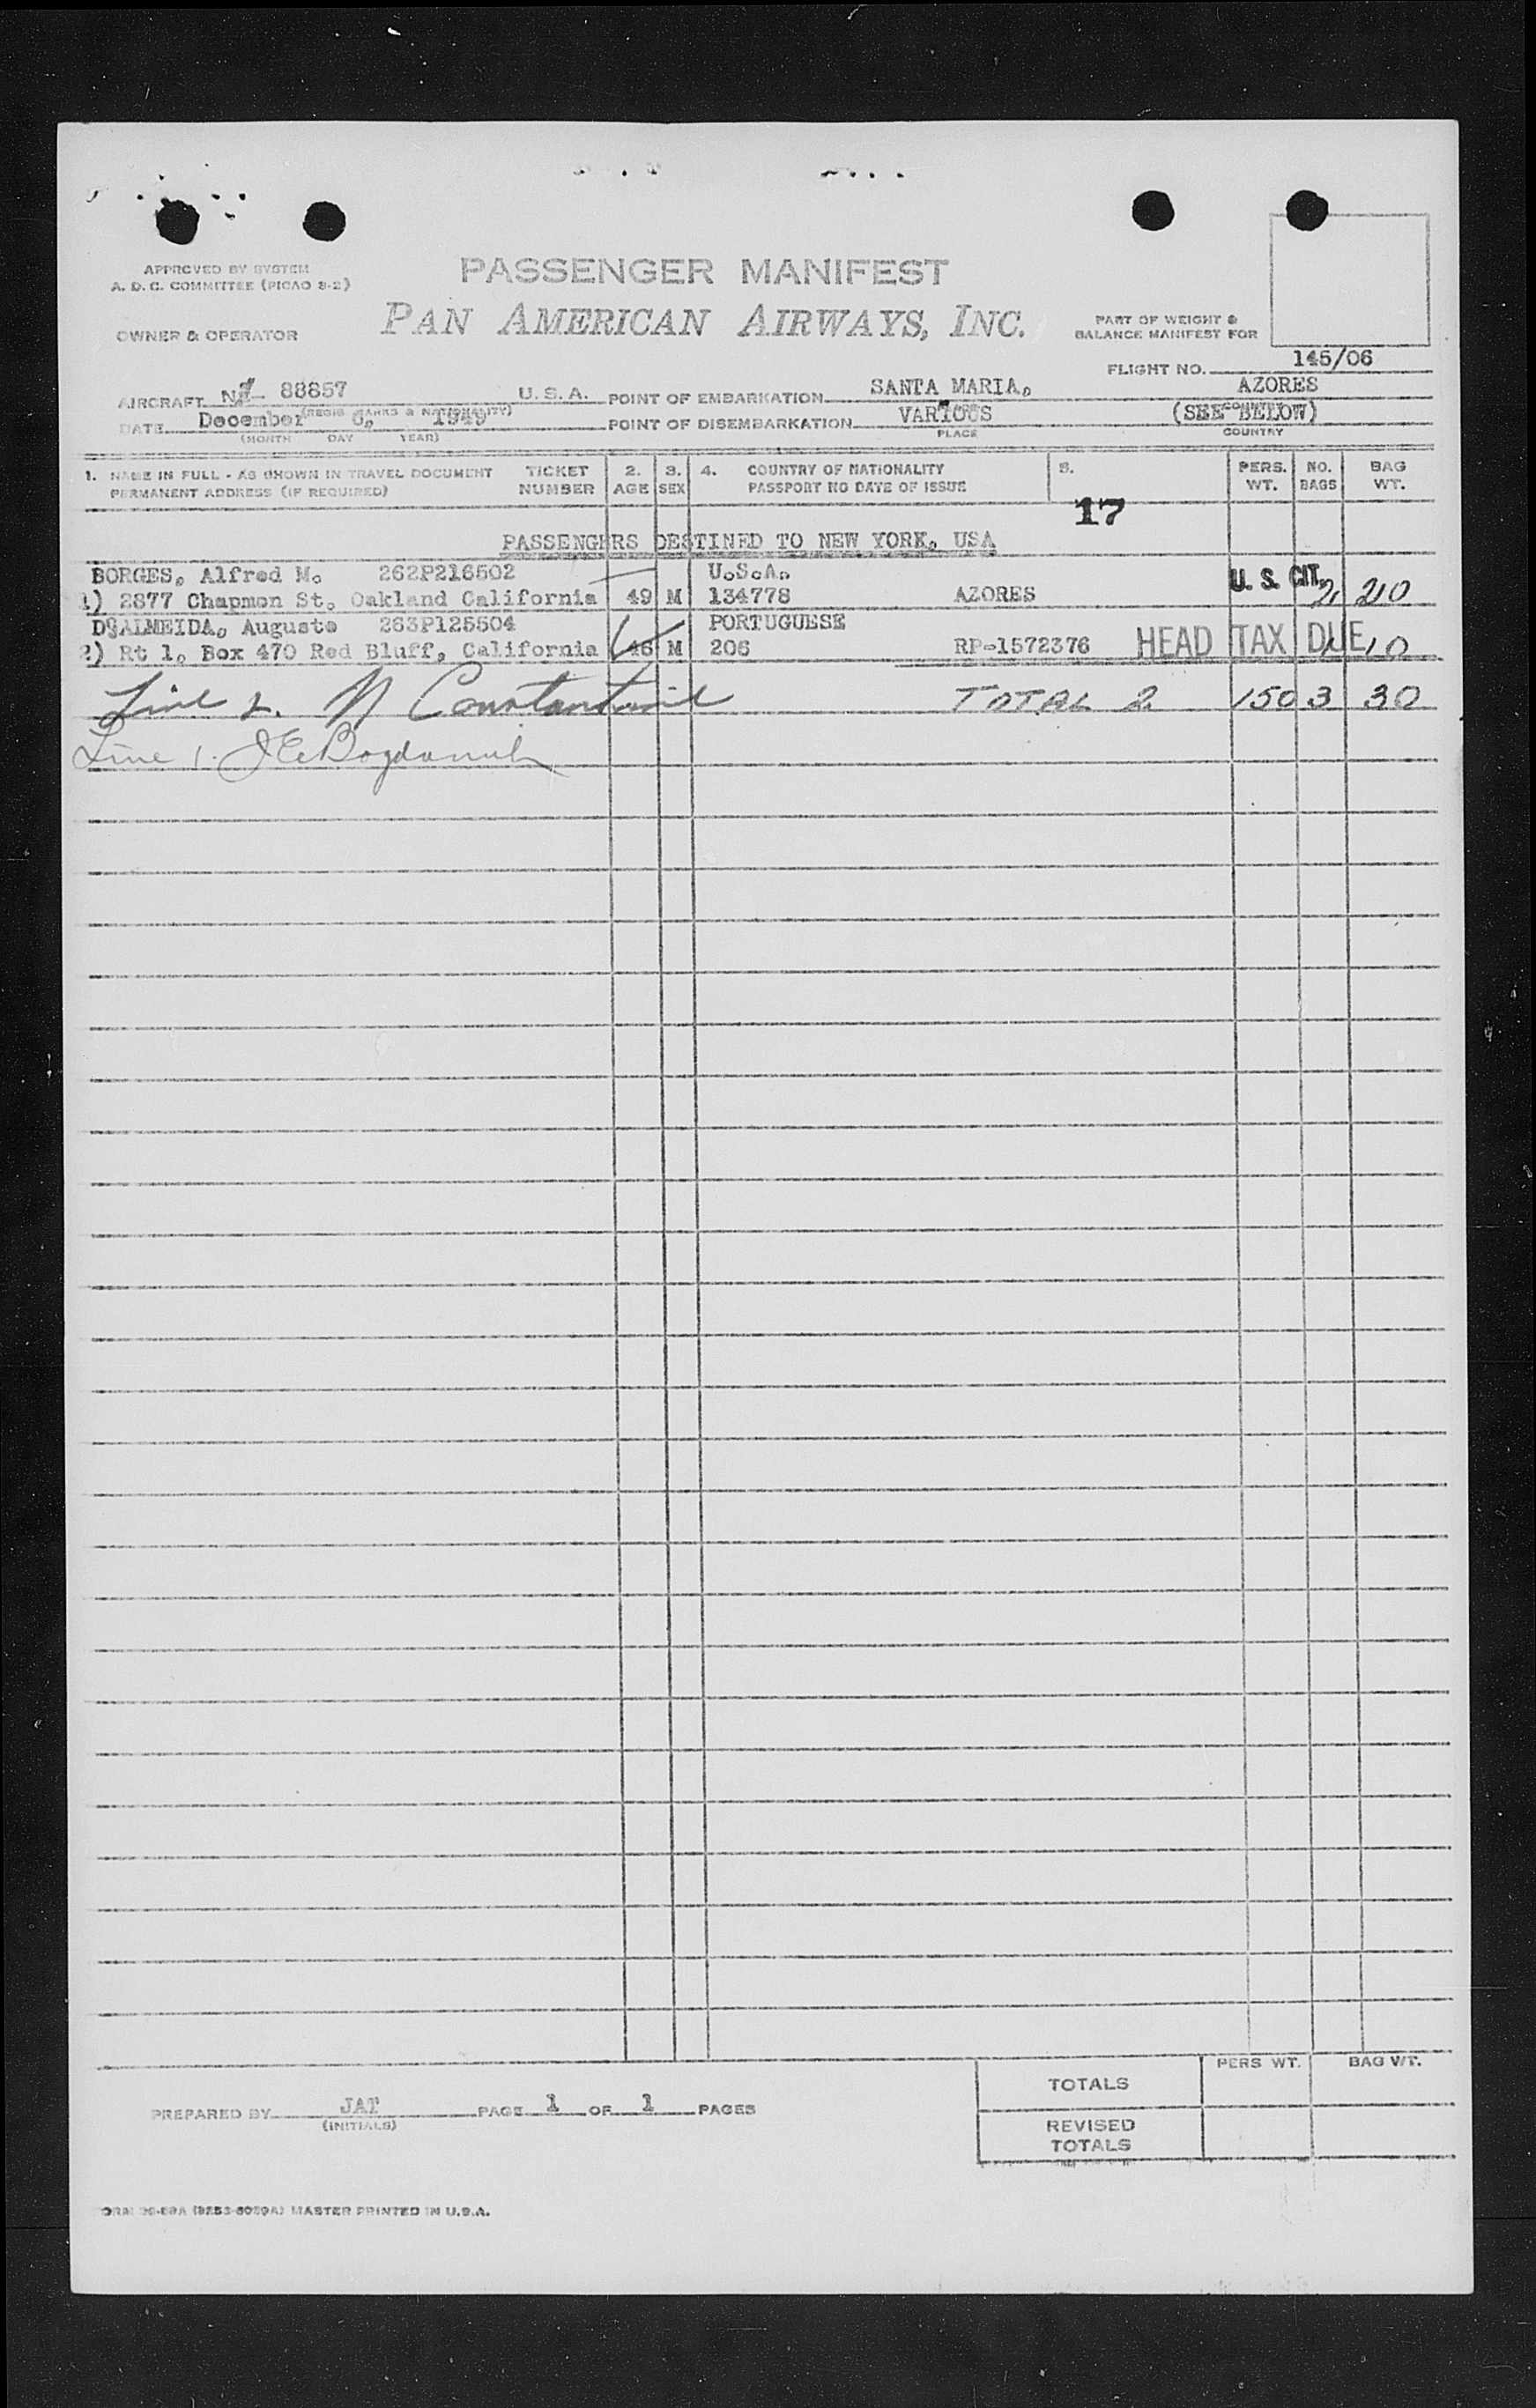 APPROVED BY SYSTEM
A. D. C. COMMITTEE (PICAO 8-2)
PASSENGER MANIFEST
OWNER & OPERATOR
PAN AMERICAN AIRWAYS, INC.
PART OF WEIGHT &
BALANCE MANIFEST FOR
FLIGHT NO. 145/06
AIRCRAFT 88857 U. S. A. POINT OF EMBARKATION SANTA MARIA, AZORES
(REGIS MARKS & NATIONALITY)
DATE December 6, 1949 POINT OF DISEMBARKATION VARIOUS (SEE BELOW)
(MONTH DAY YEAR) PLACE COUNTRY
1. NAME IN FULL - AS SHOWN IN TRAVEL DOCUMENT TICKET 2. 3. 4. COUNTRY OF NATIONALITY 5. PERS. NO. BAG
PERMANENT ADDRESS (IF REQUIRED) NUMBER AGE SEX PASSPORT NO DATE OF ISSUE WT. BAGS WT.
17
PASSENGERS DESTINED TO NEW YORK, USA
BORGES, Alfred M. 262P216502 U.S.A. U. S. CIT.
1) 2877 Chapmon St. Oakland California 49 M 134778 AZORES 2 20
D'ALMEIDA, Augusto 263P125504 PORTUGUESE
2) Rt 1, Box 470 Red Bluff, California 46 M 206 RP-1572376 HEAD TAX DUE 1 10
Line 2. N Constantine TOTAL 2 150 3 30
Line 1. J E Bogdanich
PERS WT. BAG WT.
TOTALS
PREPARED BY JAT PAGE 1 OF 1 PAGES
(INITIALS)
REVISED
TOTALS
MASTER PRINTED IN U.S.A.